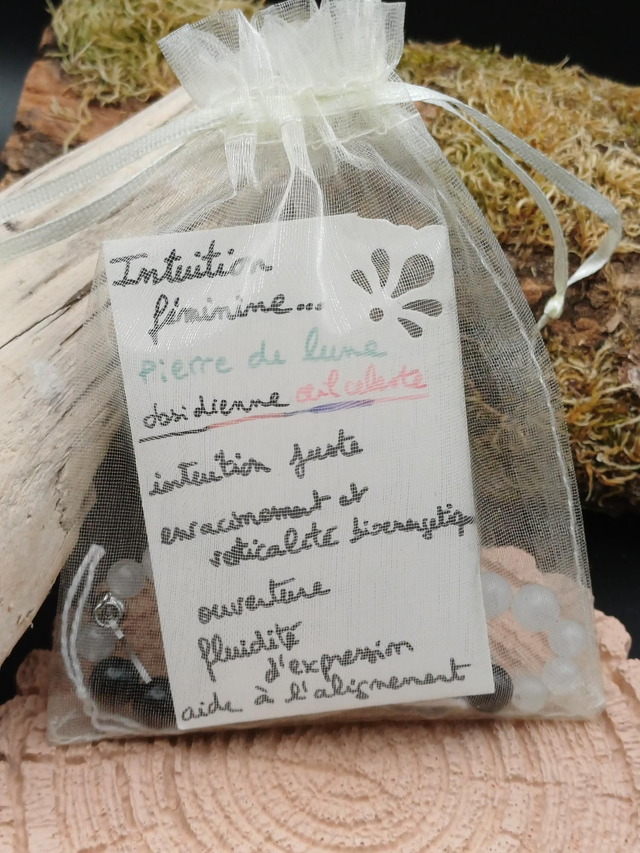 Intuition
féminine...
pierre de lune
obsidienne œil celeste
intuition juste
enracinement et
verticalité bioenergetique
ouverture
fluidité
d'expression
aide à l'alignement